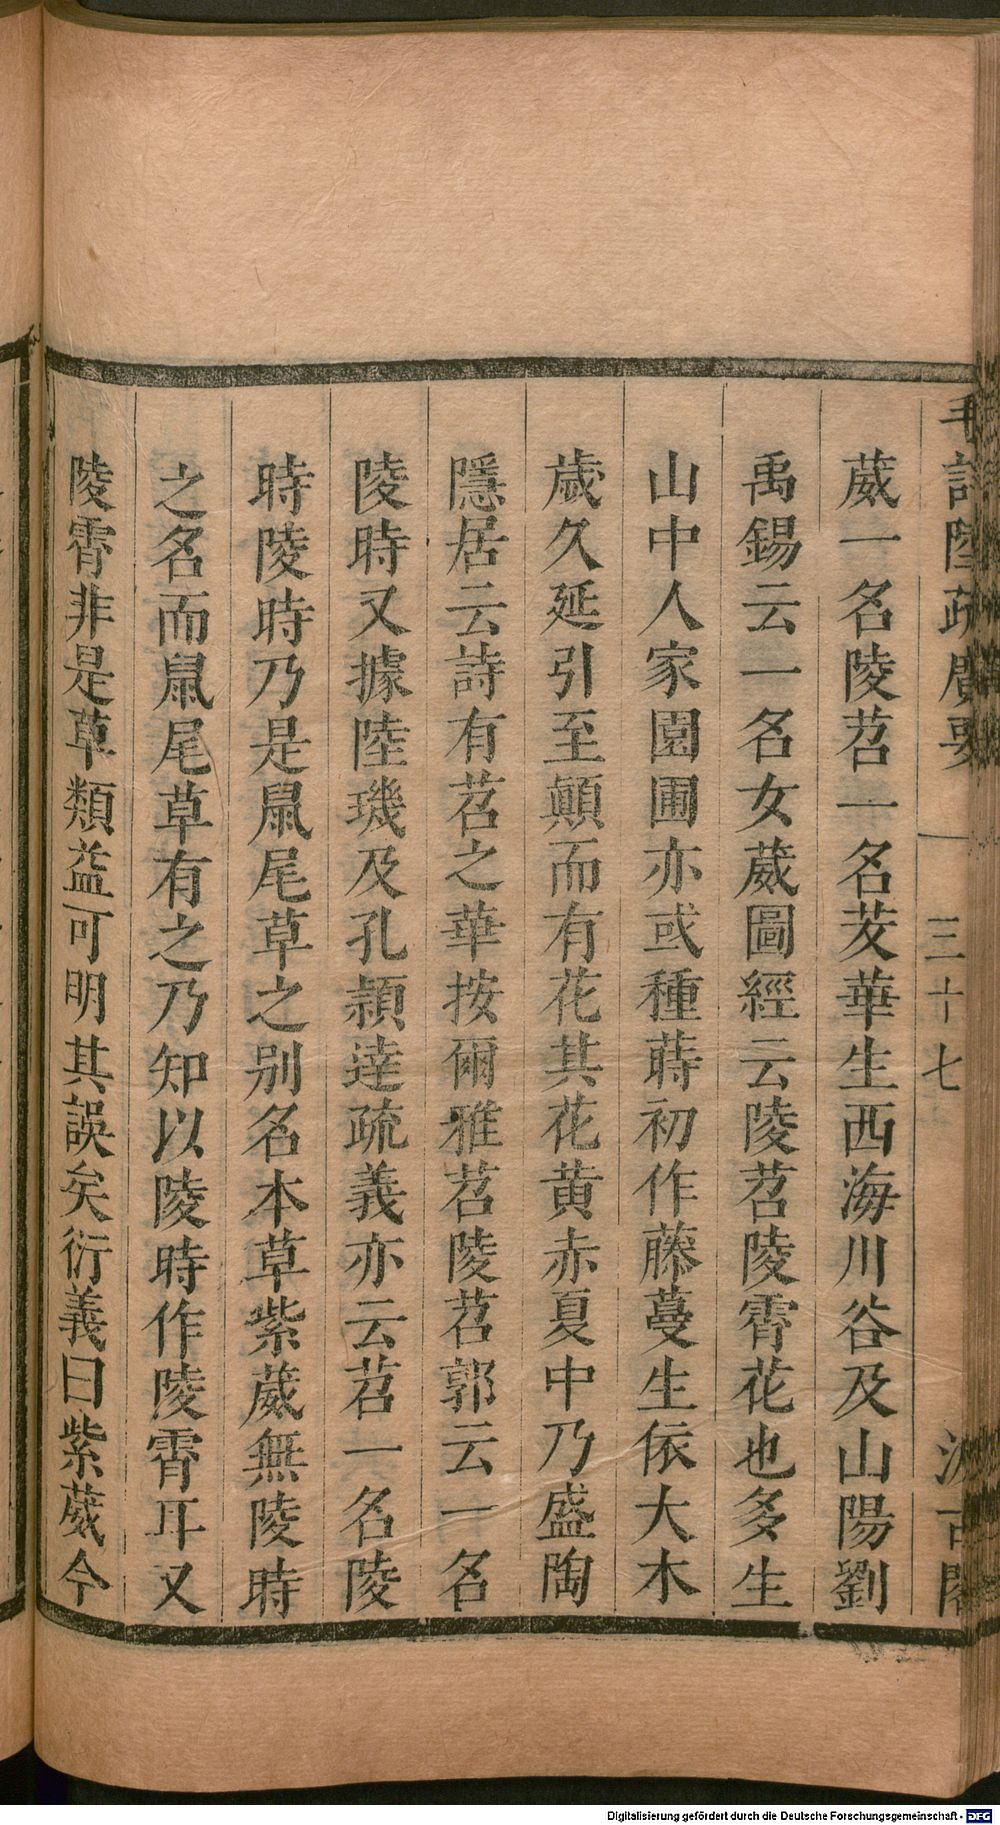 毛詩陸疏廣要
三十七
汲古閣
葳一名陵苕一名茇華生西海川谷及山陽劉
禹錫云一名女葳圖經云陵苕陵霄花也多生
山中人家園圃亦或種蒔初作藤蔓生依大木
歲久延引至顛而有花其花黄赤夏中乃盛陶
隱居云詩有苕之華按爾雅苕陵苕郭云一名
陵時又據陸璣及孔頴逹疏義亦云苕一名陵
時陵時乃是鼠尾草之别名本草紫葳無陵時
之名而鼠尾草有之乃知以陵時作陵霄耳又
陵霄非是草類益可明其誤矣衍義曰紫葳今
Digitalisierung gefördert durch die Deutsche Forschungsgemeinschaft - DFG